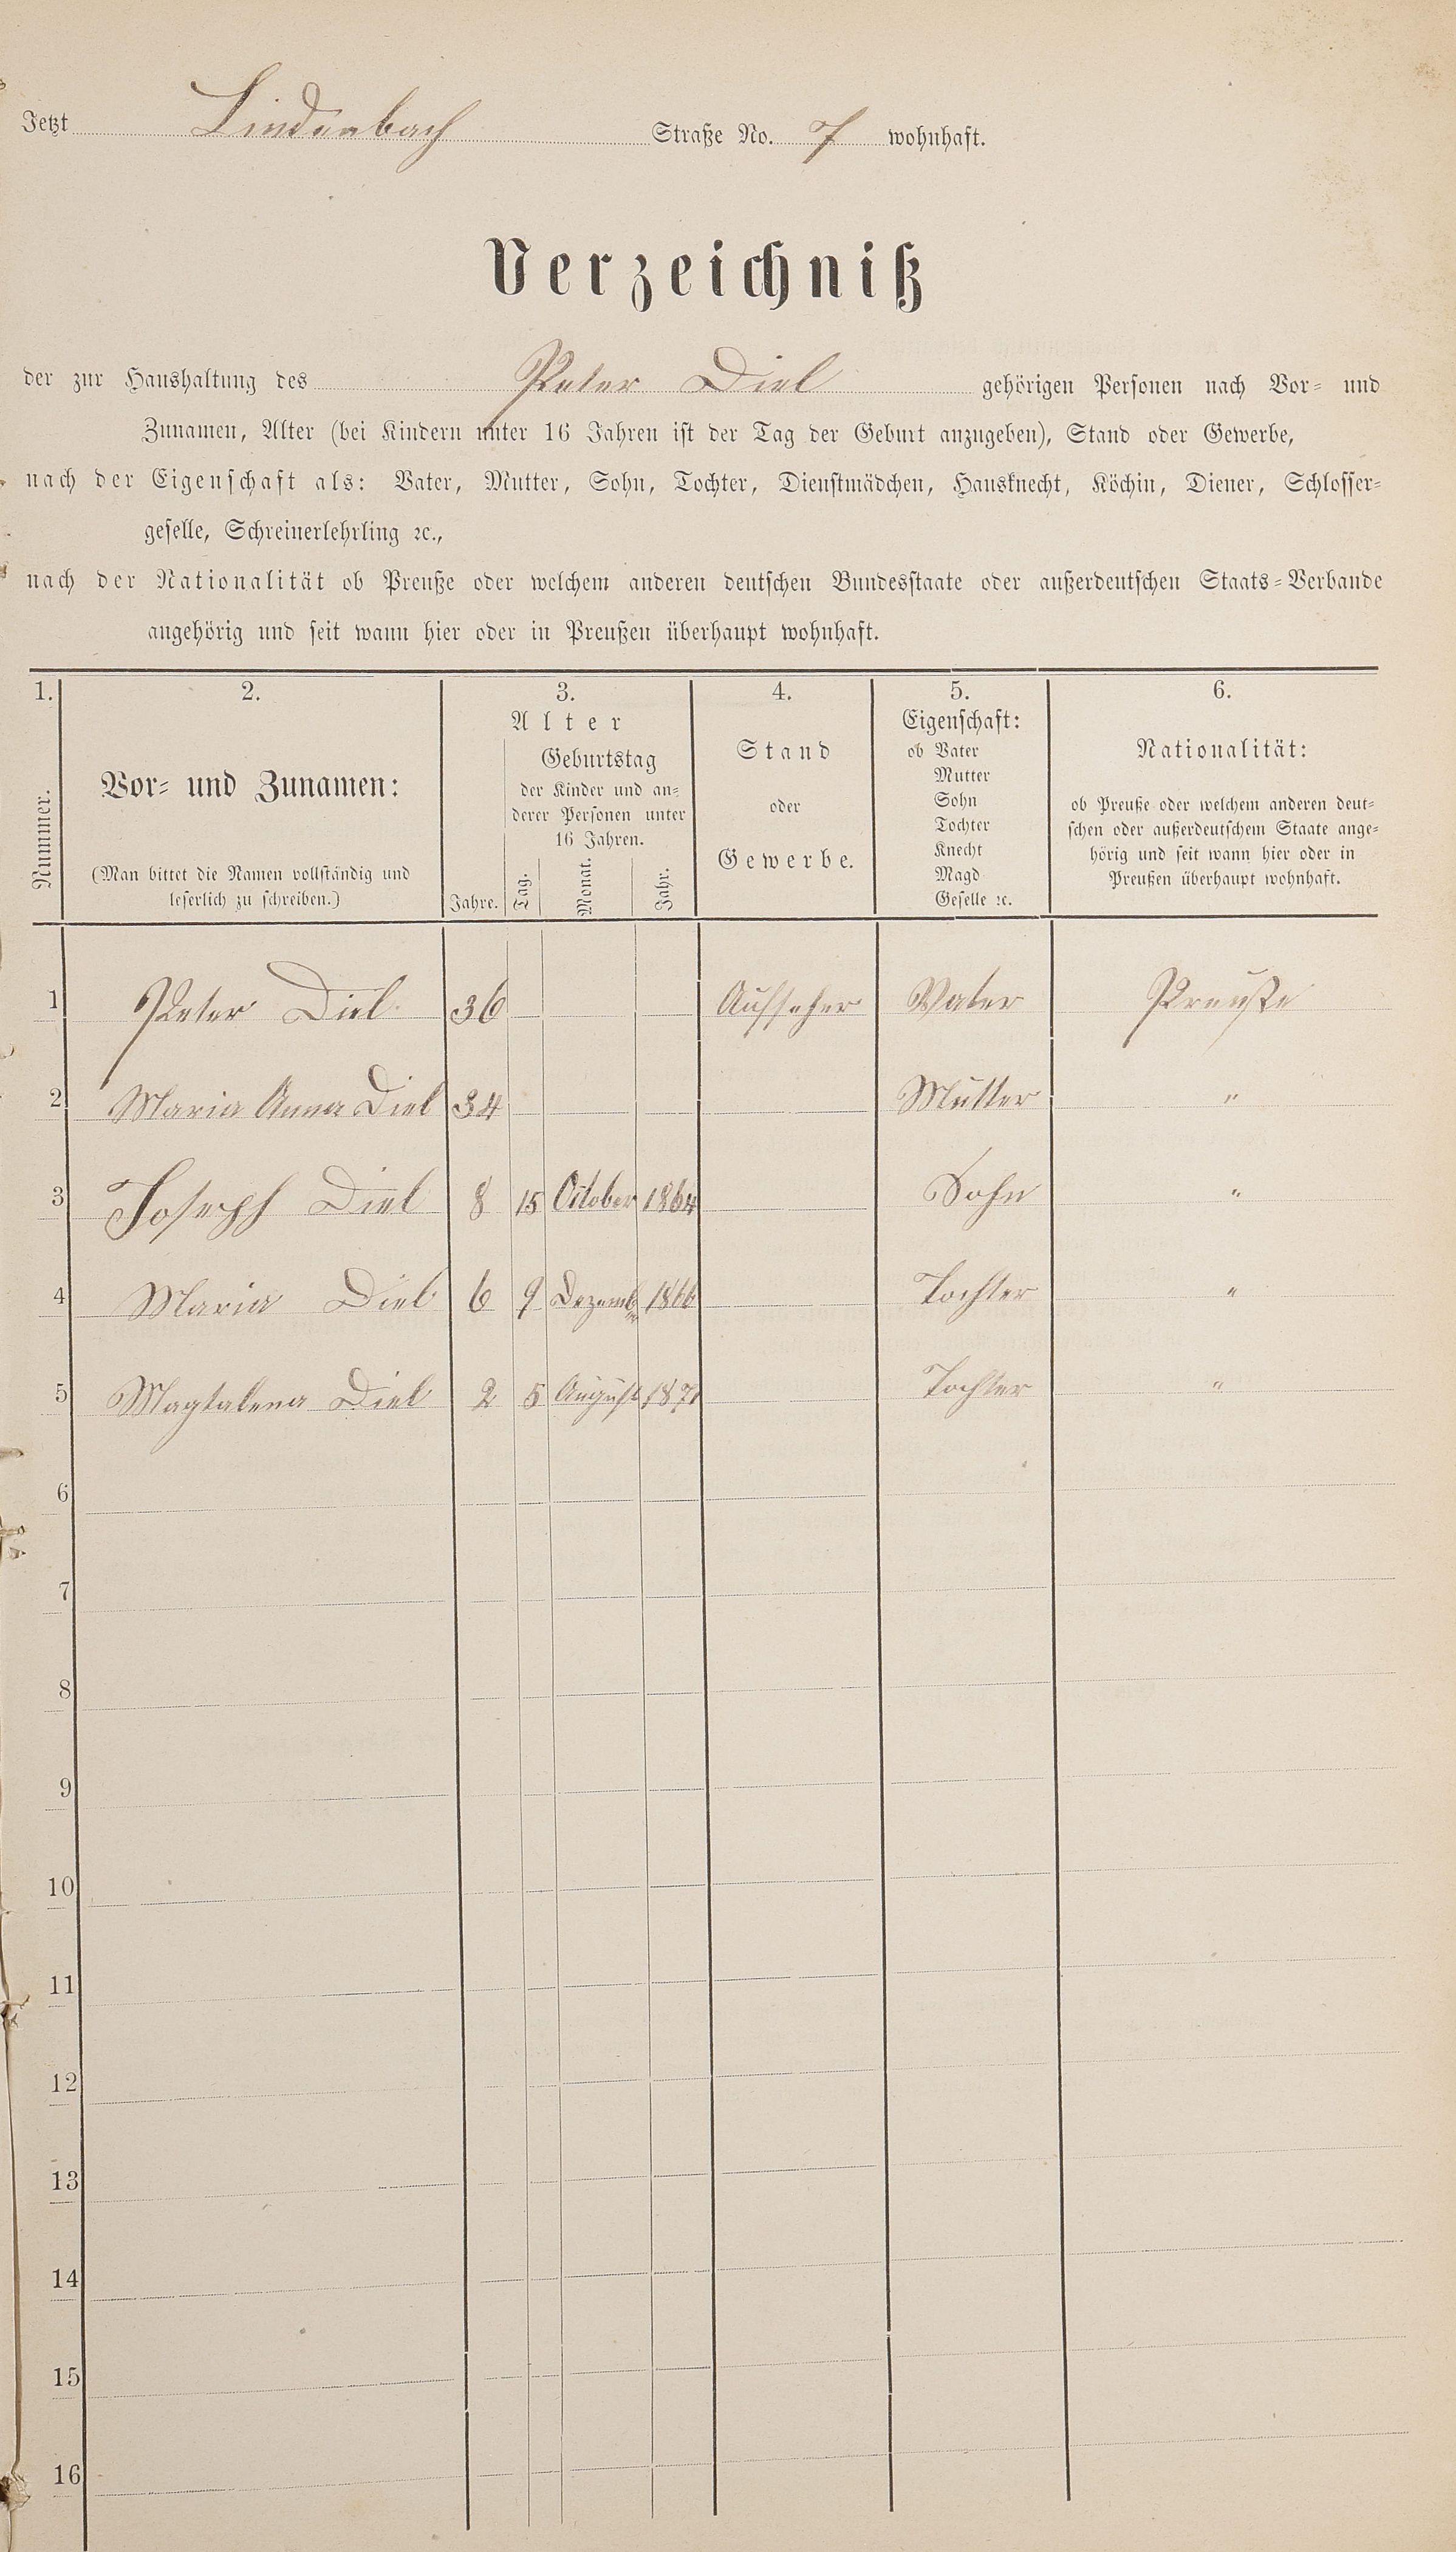 Jetzt Lindenbach Straße No. 7 wohnhaft.
Verzeichniß
der zur Haushaltung des Peter Diel gehörigen Personen nach Vor- und
Zunamen, Alter (bei Kindern unter 16 Jahren ist der Tag der Geburt anzugeben), Stand oder Gewerbe,
nach der Eigenschaft als: Vater, Mutter, Sohn, Tochter, Dienstmädchen, Hausknecht, Köchin, Diener, Schlosser-
geselle, Schreinerlehrling ꝛc.,
nach der Nationalität ob Preuße oder welchem anderen deutschen Bundesstaate oder außerdeutschen Staats-Verbande
angehörig und seit wann hier oder in Preußen überhaupt wohnhaft.
1.
Nummer.
2.
Vor- und Zunamen:
(Man bittet die Namen vollständig und
leserlich zu schreiben.)
3.
Alter
Jahre.
Geburtstag
der Kinder und an-
derer Personen unter
16 Jahren.
Tag. Monat. Jahr.
4.
Stand
oder
Gewerbe.
5.
Eigenschaft:
ob Vater
Mutter
Sohn
Tochter
Knecht
Magd
Geselle ꝛc.
6.
Nationalität:
ob Preuße oder welchem anderen deut-
schen oder außerdeutschem Staate ange-
hörig und seit wann hier oder in
Preußen überhaupt wohnhaft.
1 Peter Diel 36 Aufseher Vater Preuße
2 Maria Anna Diel 34 Mutter "
3 Joseph Diel 8 15 October 1864 Sohn "
4 Maria Diel 6 9 Dezember 1866 Tochter "
5 Magtalena Diel 2 5 August 1871 Tochter "
6
7
8
9
10
11
12
13
14
15
16